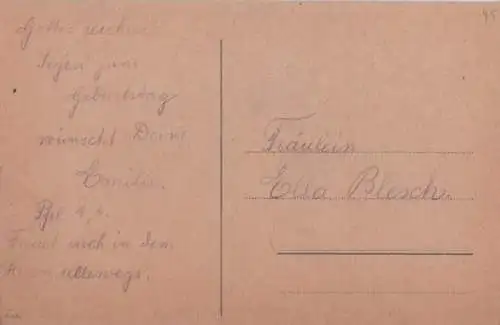 Gottes reichen
Segen zum
Geburtstag
wünscht Deine
Phil 4,4.
Freuet euch in dem
Herrn allewege.
Fräulein
Ella Blesch
45